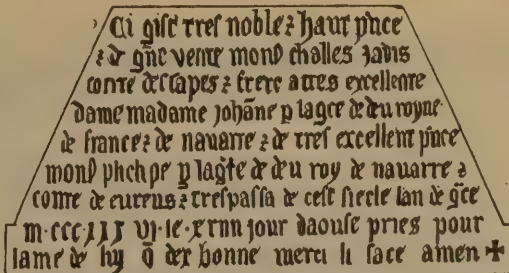 Ci gist tres noble ⁊ haut p'nce
⁊ de g̃nt vertu mons̃ challes jadis
conte destapes ⁊ frere a tres excellente
dame madame joħane p̱ la g̃ce de deu royne
de france ⁊ de nauarre ⁊ de tres excellent p'nce
mons̃ phelippe p̱ la g̃ce de deu roy de nauarre ⁊
conte de eureus ⁊ trespassa de cest siecle lan de g̃ce
m·ccc·xxx vi·le·xxiiii jour daoust pries pour
lame de luy q̃ dex bonne merci li face amen ✠